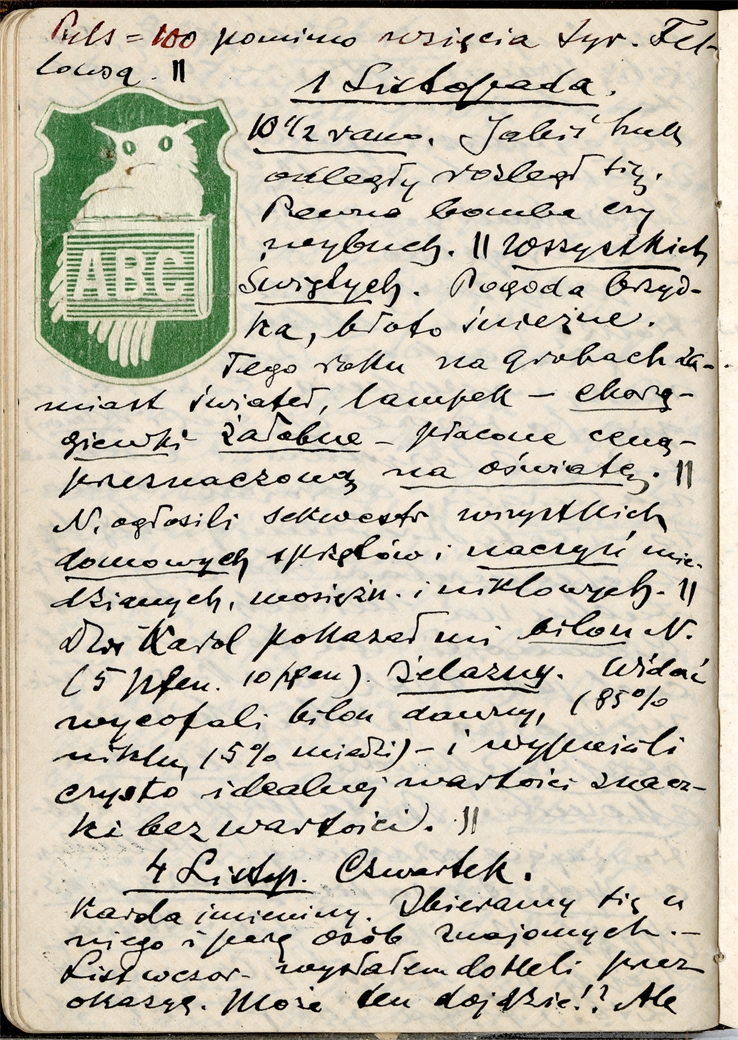 Puls = 100 pomimo wzięcia tyr. Fel-
lowsa. ||
1 Listopada.
ABC
10 1/2 rano. Jakiś huk
odległy rozległ się.
Pewno bomba czy
wybuch. || Wszystkich
Świętych. Pogoda brzyd-
ka, błoto śnieżne.
Tego roku na grobach za-
miast świateł, lampek – chorą-
giewki żałobne – płacone ceną
przeznaczoną na oświatę. ||
N. ogłosili sekwestr wszystkich
domowych sprzętów i naczyń mie-
dzianych, mosiężn. i niklowych. ||
Karol pokazał mi bilon N.
(5 pfen. 10 pfen). żelazny. Widać
wycofali bilon dawny, (85%
niklu, 15% miedzi) – i wypuścili
czysto idealnej wartości znacz-
ki bez wartości. ||
4 Listop. Czwartek.
Karola imieniny. Zbieramy się u
niego i parę osób znajomych. –
List wczor. wysłałem do Heli przez
okazyę. Może ten dojdzie!? Ale